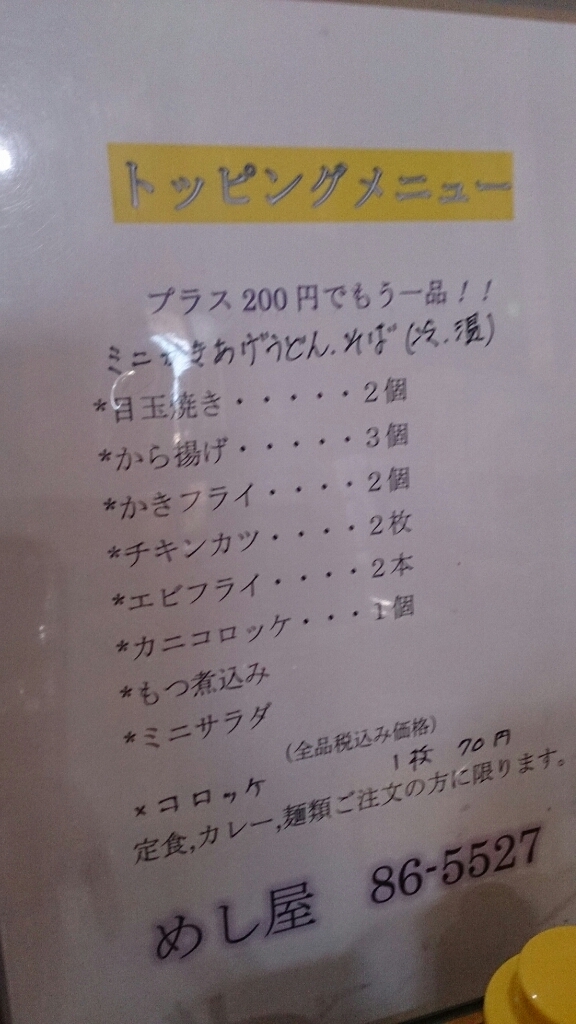 トッピングメニュー
プラス200円でもう一品！！
ミニかきあげうどん.そば(冷.温)
*目玉焼き・・・・・2個
*から揚げ・・・・・3個
*かきフライ・・・・2個
*チキンカツ・・・・2枚
*エビフライ・・・・2本
*カニコロッケ・・・1個
*もつ煮込み
*ミニサラダ
(全品税込み価格)
×コロッケ 1枚 70円
定食,カレー,麺類ご注文の方に限ります。
めし屋 86-5527